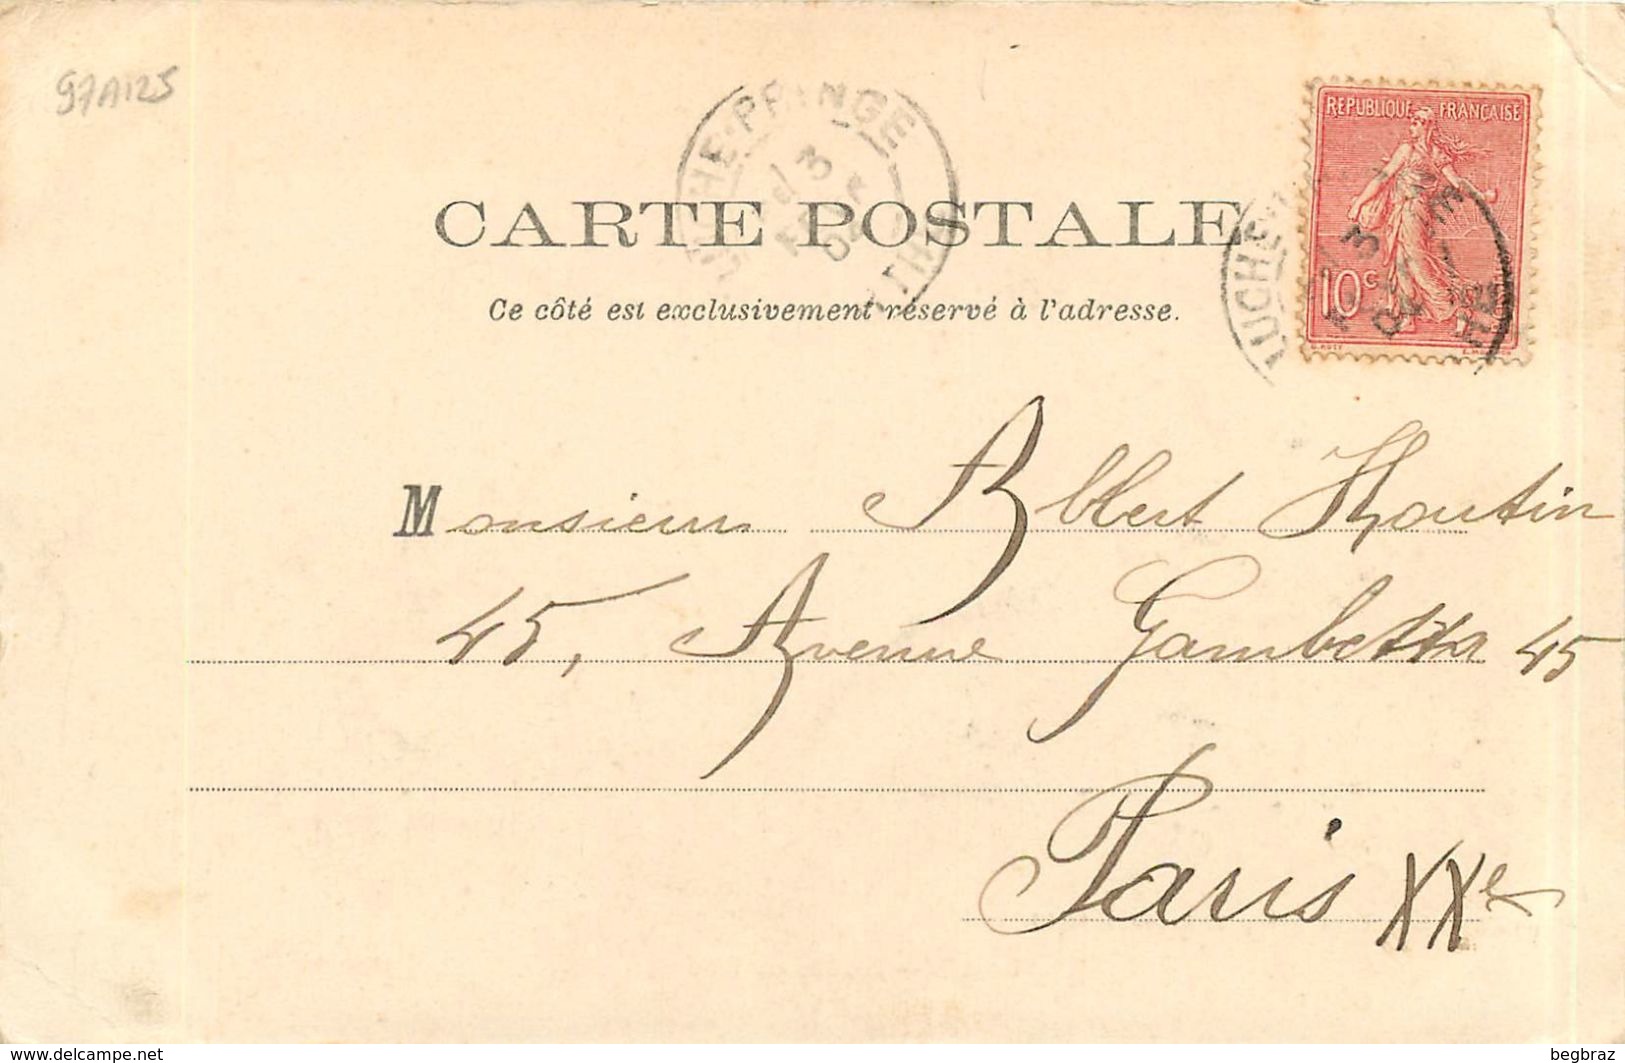 97A125
REPUBLIQUE FRANÇAISE
10c
CARTE POSTALE
Ce côté est exclusivement réservé à l'adresse.
Monsieur Albert Houtin
45, Avenue Gambetta 45
Paris XXe
www.delcampe.net
begbraz